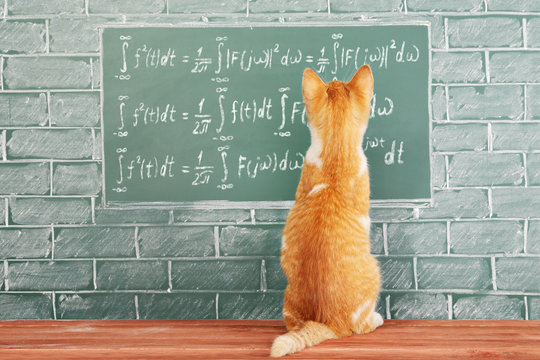 ∫_{-∞}^{∞} f²(t)dt = 1/2π ∫_{-∞}^{∞} |F(jω)|² dω = 1/2π ∫_{-∞}^{∞} |F(jω)|² dω
∫_{-∞}^{∞} f²(t)dt = 1/2π ∫_{-∞}^{∞} f(t)dt ∫_{-∞}^{∞} F(jω) dω
∫_{-∞}^{∞} f²(t)dt = 1/2π ∫_{-∞}^{∞} F(jω)dω jωt dt